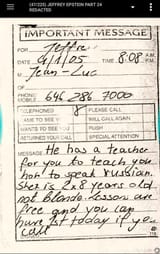 (47/225) JEFFREY EPSTEIN PART 24
REDACTED
IMPORTANT MESSAGE
FOR Jeffrey
DATE 4/1/05 TIME 8:08 A.M.
P.M.
M Jean-Luc
OF
PHONE/
MOBILE 646 286 7000
TELEPHONED PLEASE CALL
CAME TO SEE YOU WILL CALL AGAIN
WANTS TO SEE YOU RUSH
RETURNED YOUR CALL SPECIAL ATTENTION
MESSAGE He has a teacher
for you to teach you
how to speak russian.
She is 2x8 years old
not blonde. Lessons are
free and you can
have 1st today if you
call